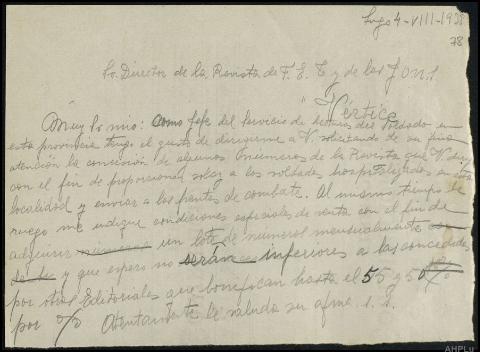 Lugo 4-VIII-1938
78
Sr. Director de la Revista de F. E. T. y de las J O N S
"Vértice
Muy Sr mio: Como Jefe del Servicio de lecturas del Soldado en
esta provincia tengo el gusto de dirigirme a V. solicitando de su fina
atención la concesión de algunos números de la Revista que V. dirige
con el fin de proporcionar solaz a los soldados hospitalizados en esta
localidad y enviar a los frentes de combate. Al mismo tiempo le
ruego me indique condiciones especiales de venta con el fin de
adquirir un lote de números mensualmente
y que espero no serán inferiores a las concedidas
por otras Editoriales que bonifican hasta el 55 y 50%
por %
Atentamente le saluda su afmo. s. s.
AHPLu